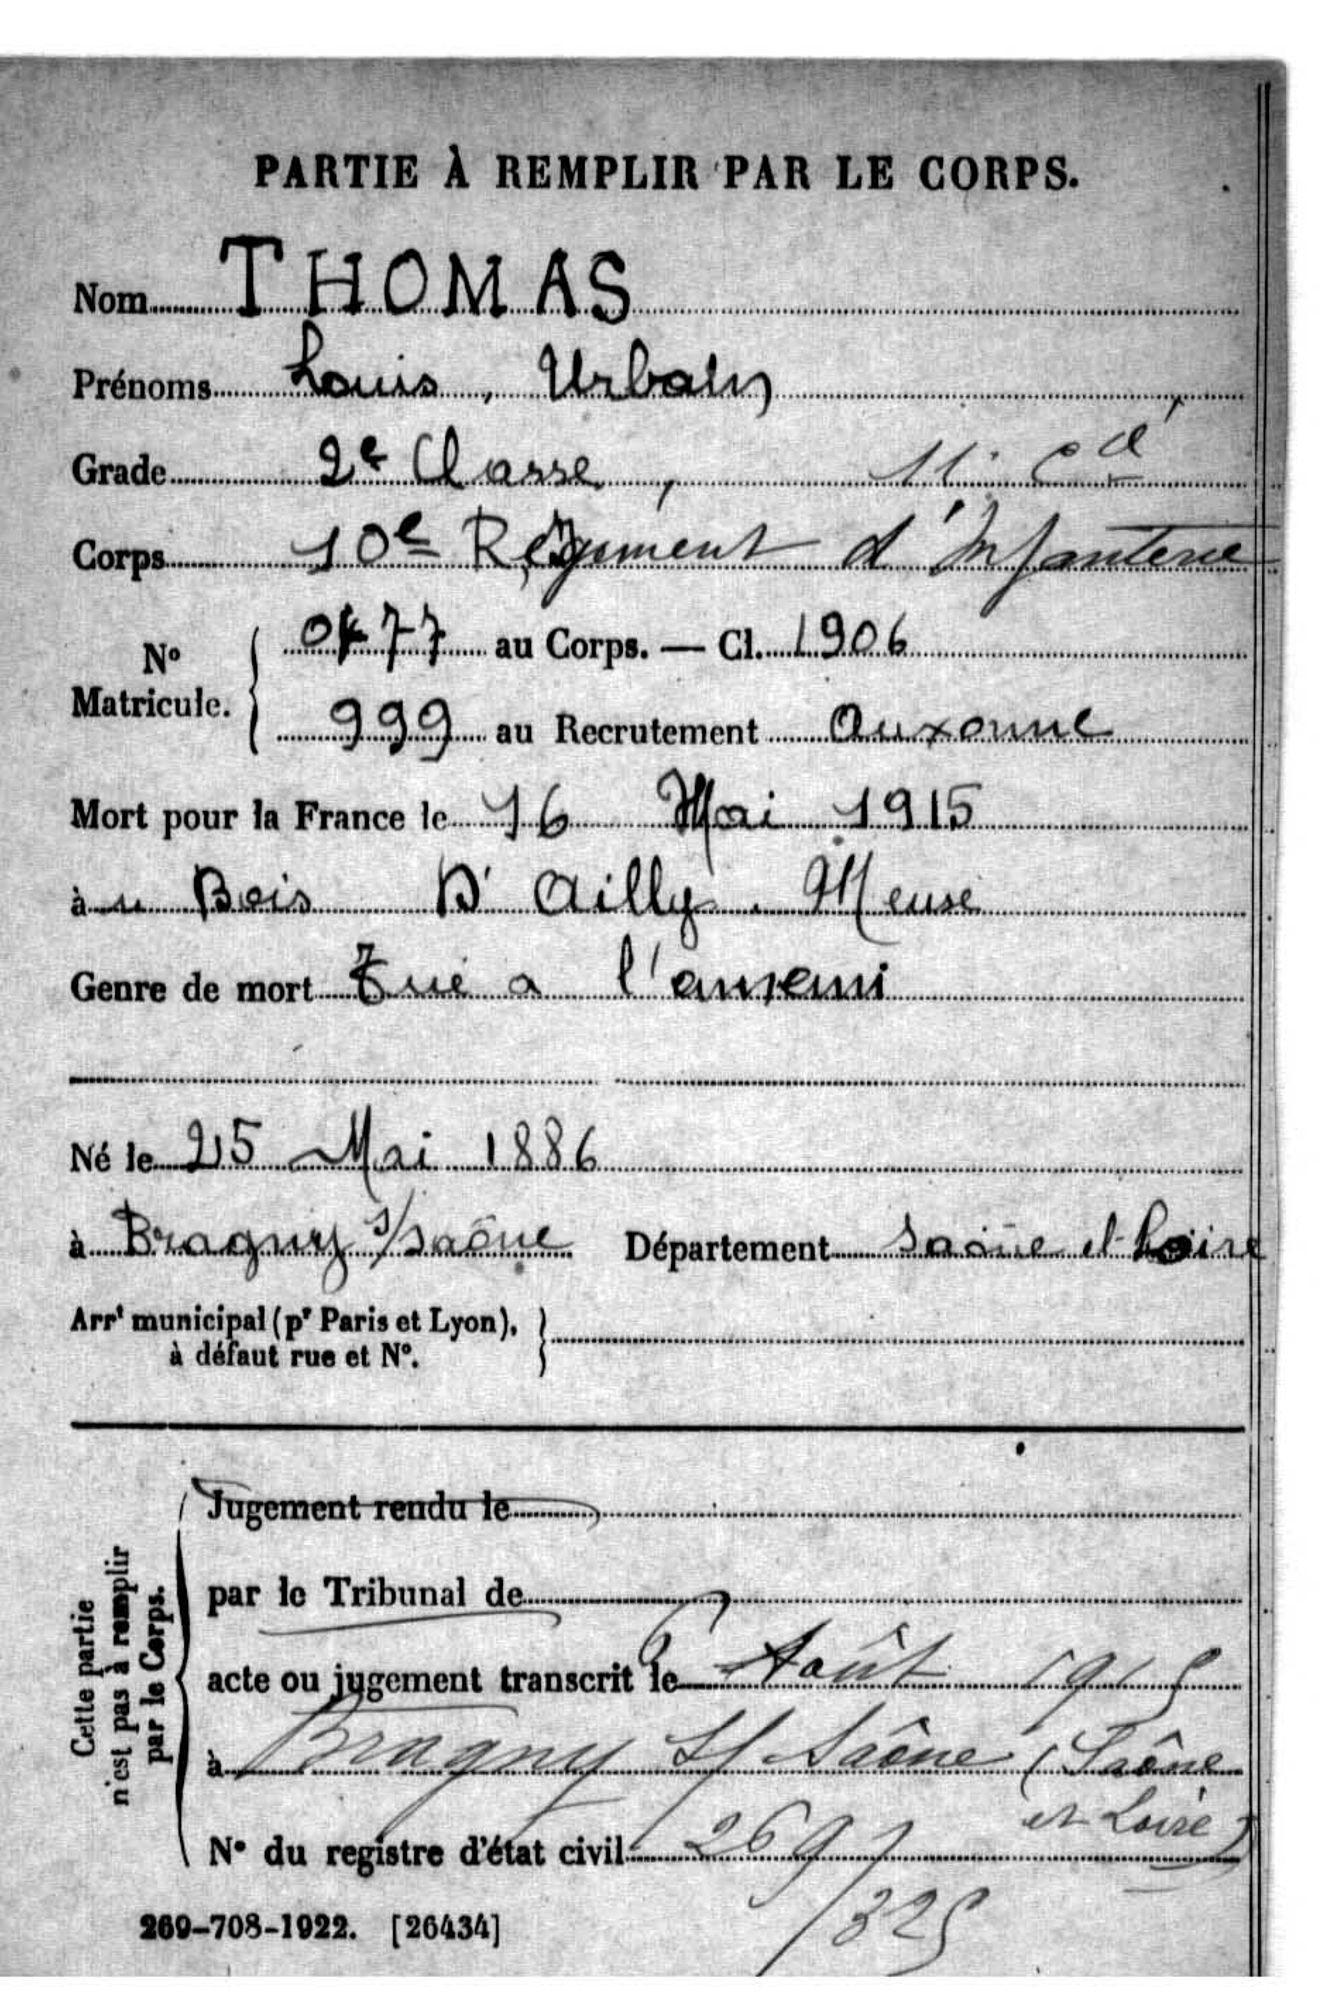 PARTIE À REMPLIR PAR LE CORPS.
Nom THOMAS
Prénoms Louis, Urbain
Grade 2e Classe, 11e Cie
Corps 10e Régiment d'Infanterie
No Matricule. { 0477 au Corps. — Cl. 1906
999 au Recrutement Auxonne
Mort pour la France le 16 Mai 1915
à u Bois D'Ailly. Meuse
Genre de mort Tué a l'annemi
Né le 25 Mai 1886
à Bragny s/Saône Département Saône et Loire
Arrt municipal (pr Paris et Lyon), }
à défaut rue et No.
Cette partie
n'est pas à remplir
par le Corps.
Jugement rendu le
par le Tribunal de
acte ou jugement transcrit le 6 Août 1915
à Bragny S/ Saône (Saône
et Loire)
No du registre d'état civil 2691
/325
269-708-1922. [26434]